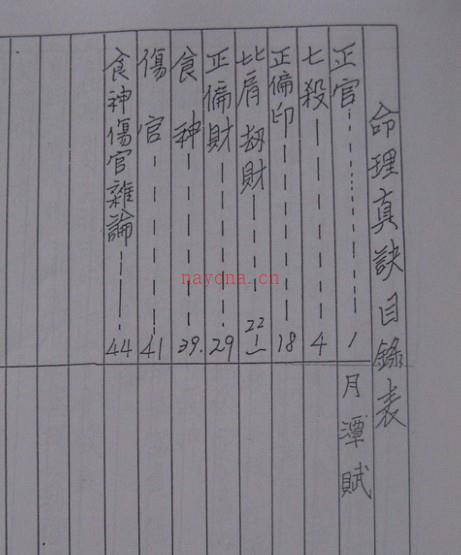 命理真訣目錄表
正官----------1
七殺----------4
正偏印----------18
比肩劫財----------22
正偏財----------29
食神----------39.
傷官----------41
食神傷官雜論----------44
月潭賦
nayona.cn